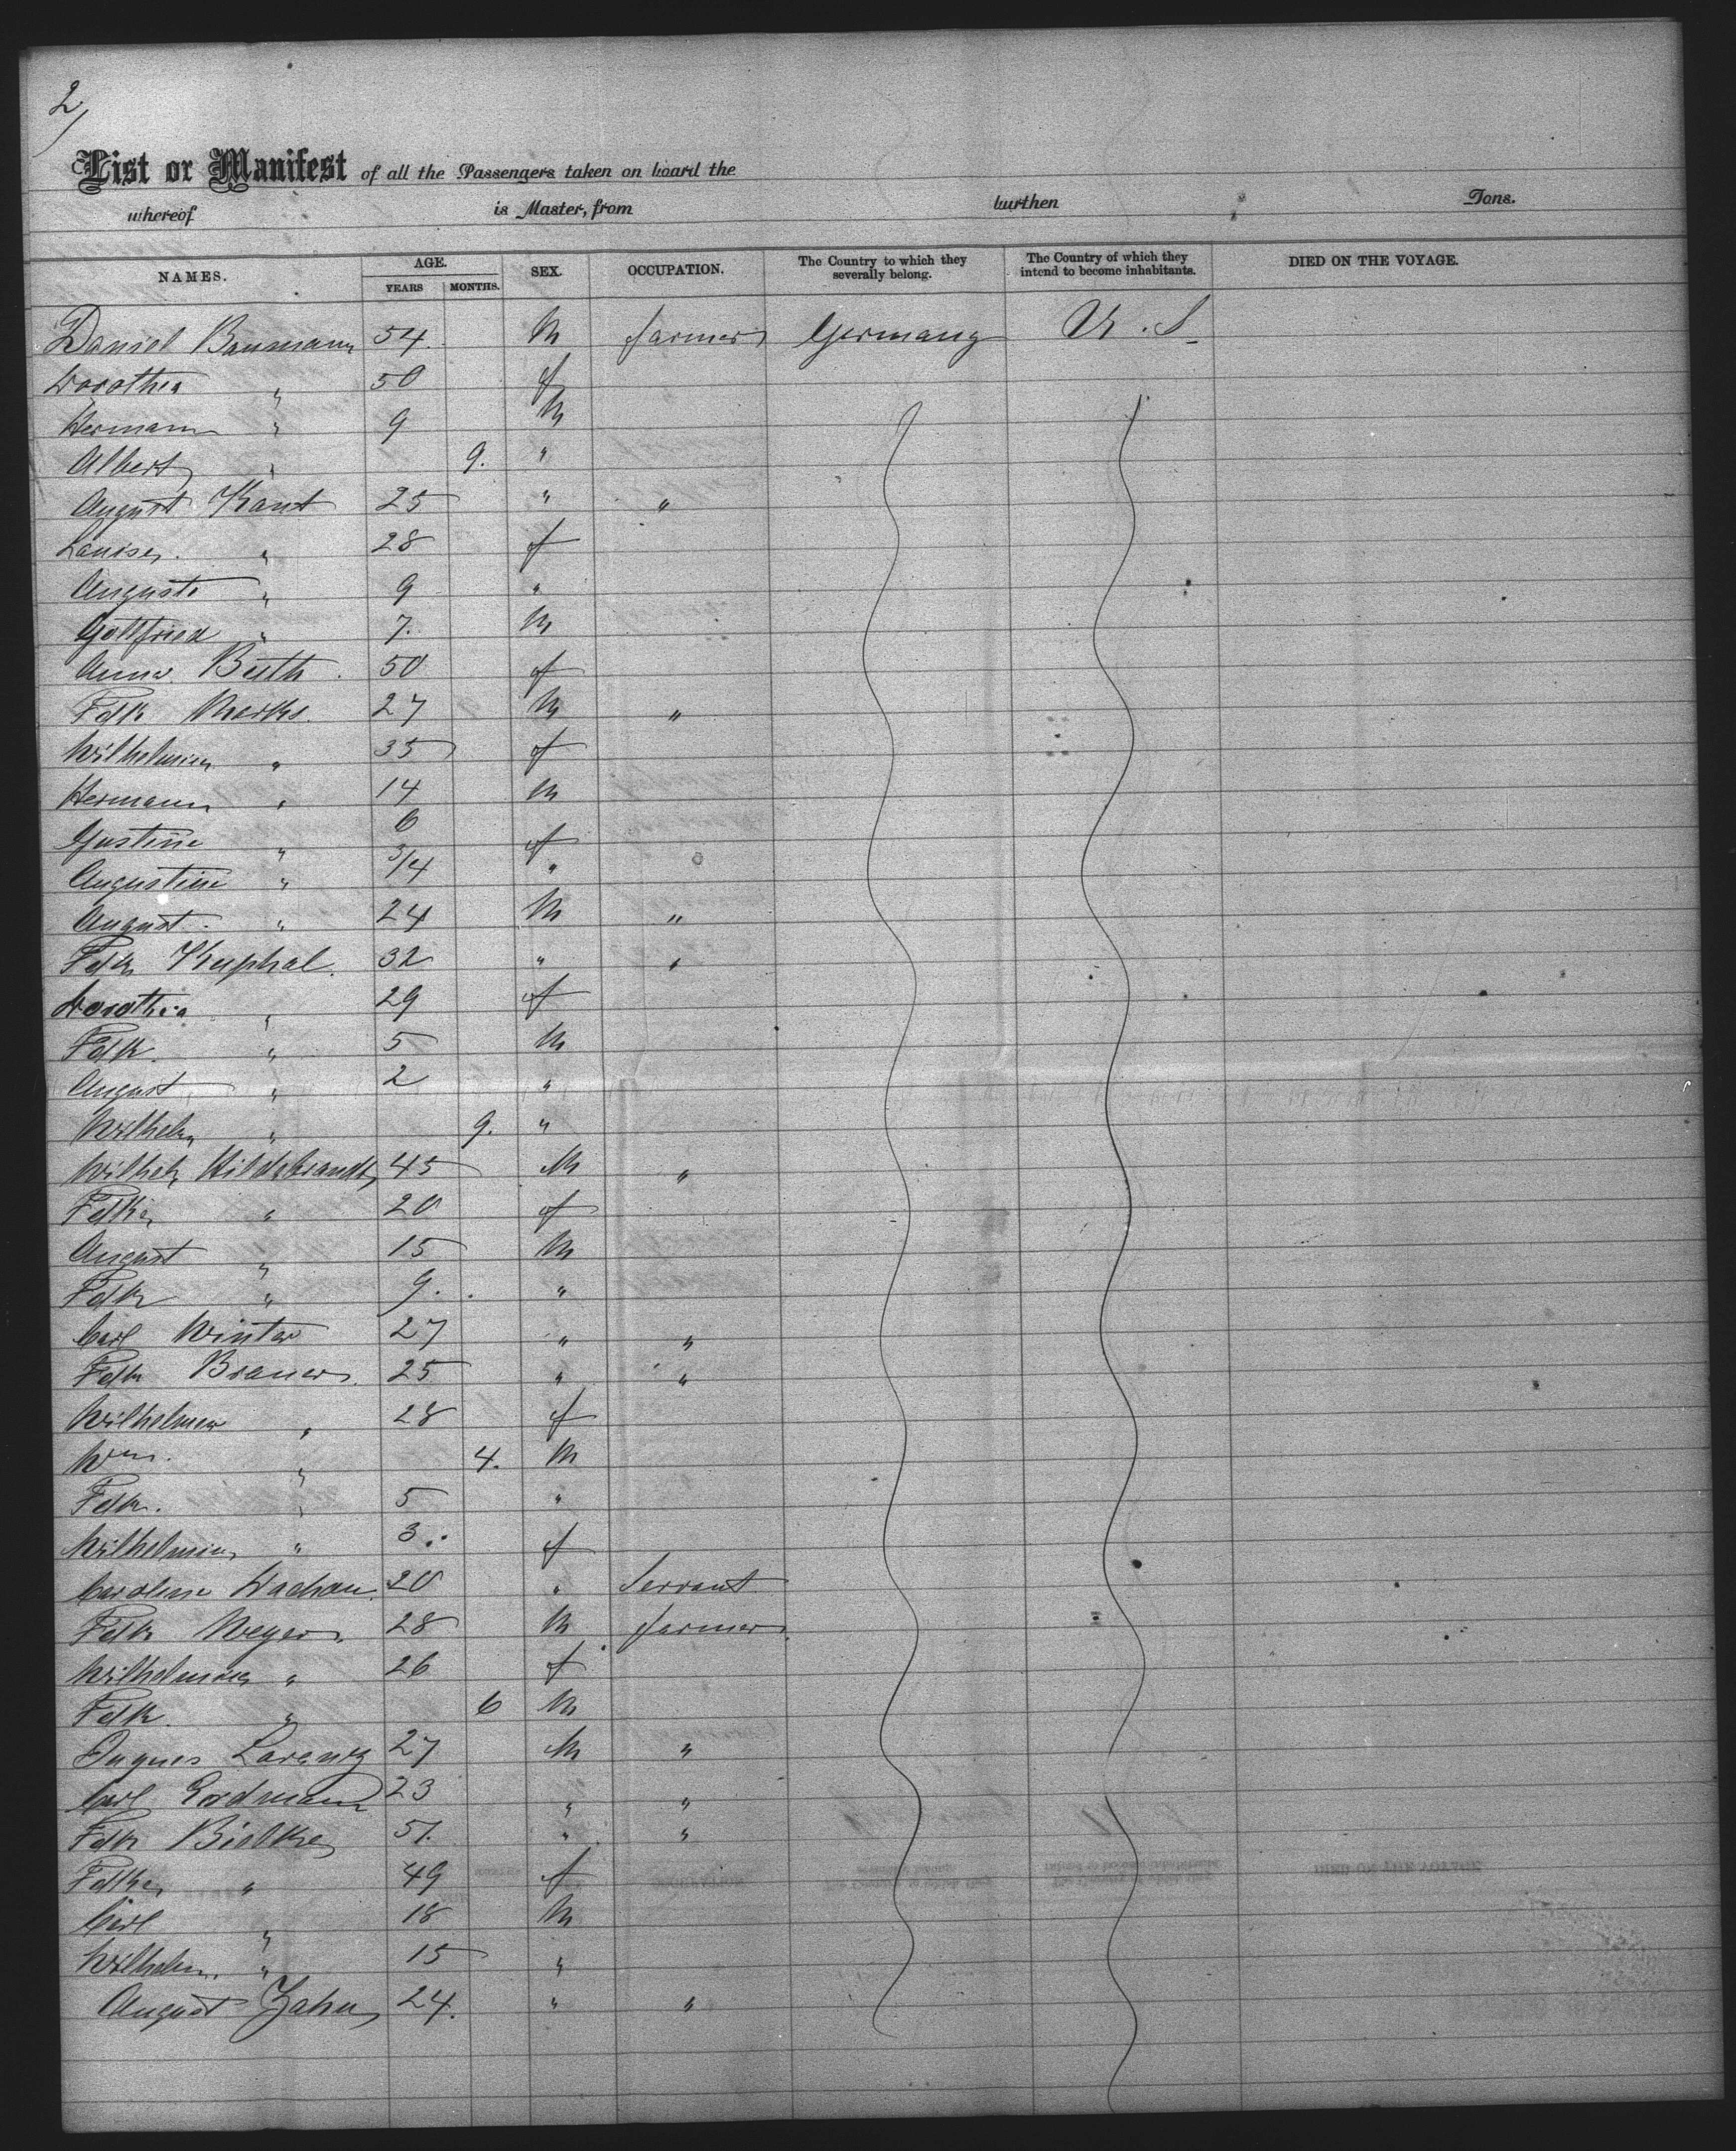 2/
List or Manifest of all the Passengers taken on board the
whereof is Master, from burthen Tons.
NAMES. AGE. YEARS MONTHS. SEX. OCCUPATION. The Country to which they severally belong. The Country of which they intend to become inhabitants. DIED ON THE VOYAGE.
Daniel Baumann 54. M farmer Germany U. S
Dorothea " 50 f
Hermann " 9 M
Albert " 9. "
August Kant 25 " "
Louise " 28 f
Auguste " 9 "
Gottfried " 7. M
Anna Buth 50 f
Fdk 27 M "
Wilhelmina " 35 f
Hermann " 14 M
Justine " 6 f
Augustine " 3/4 "
August " 24 M "
Fdk Kuphal 32 " "
Dorothea " 29 f
Fdk. " 5 M
August " 2 "
Wilhelm " 9. "
Wilhelm Hildebrandt 45 M "
Fdke " 20 f
August " 15 M
Fdk " 9. "
Carl Winter 27 " "
Fdk Brauer 25 " "
Wilhelmina " 28 f
Wm. " 4. M
Fdk. " 5 "
Wilhelmina " 3. f
Caroline Wachau 20 " Servant
Fdk Meyer 28 M farmer
Wilhelmina " 26 f
Fdk. " 6 M
Lorenz 27 M "
Carl Erdmann 23 " "
Fdk Bielke 51. " "
Fdke " 49 f
Carl " 18 M
Wilhelm " 15 "
August Zahn 24. " "